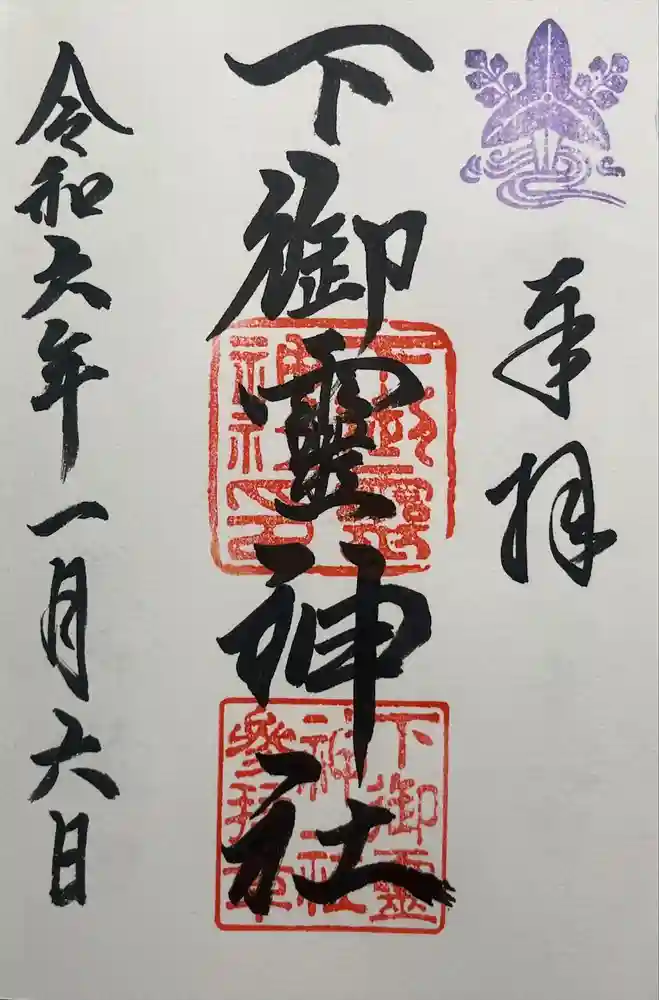 奉拝
下御靈神社
下御靈
神社印
下御靈
神社
参拝章
令和六年一月六日